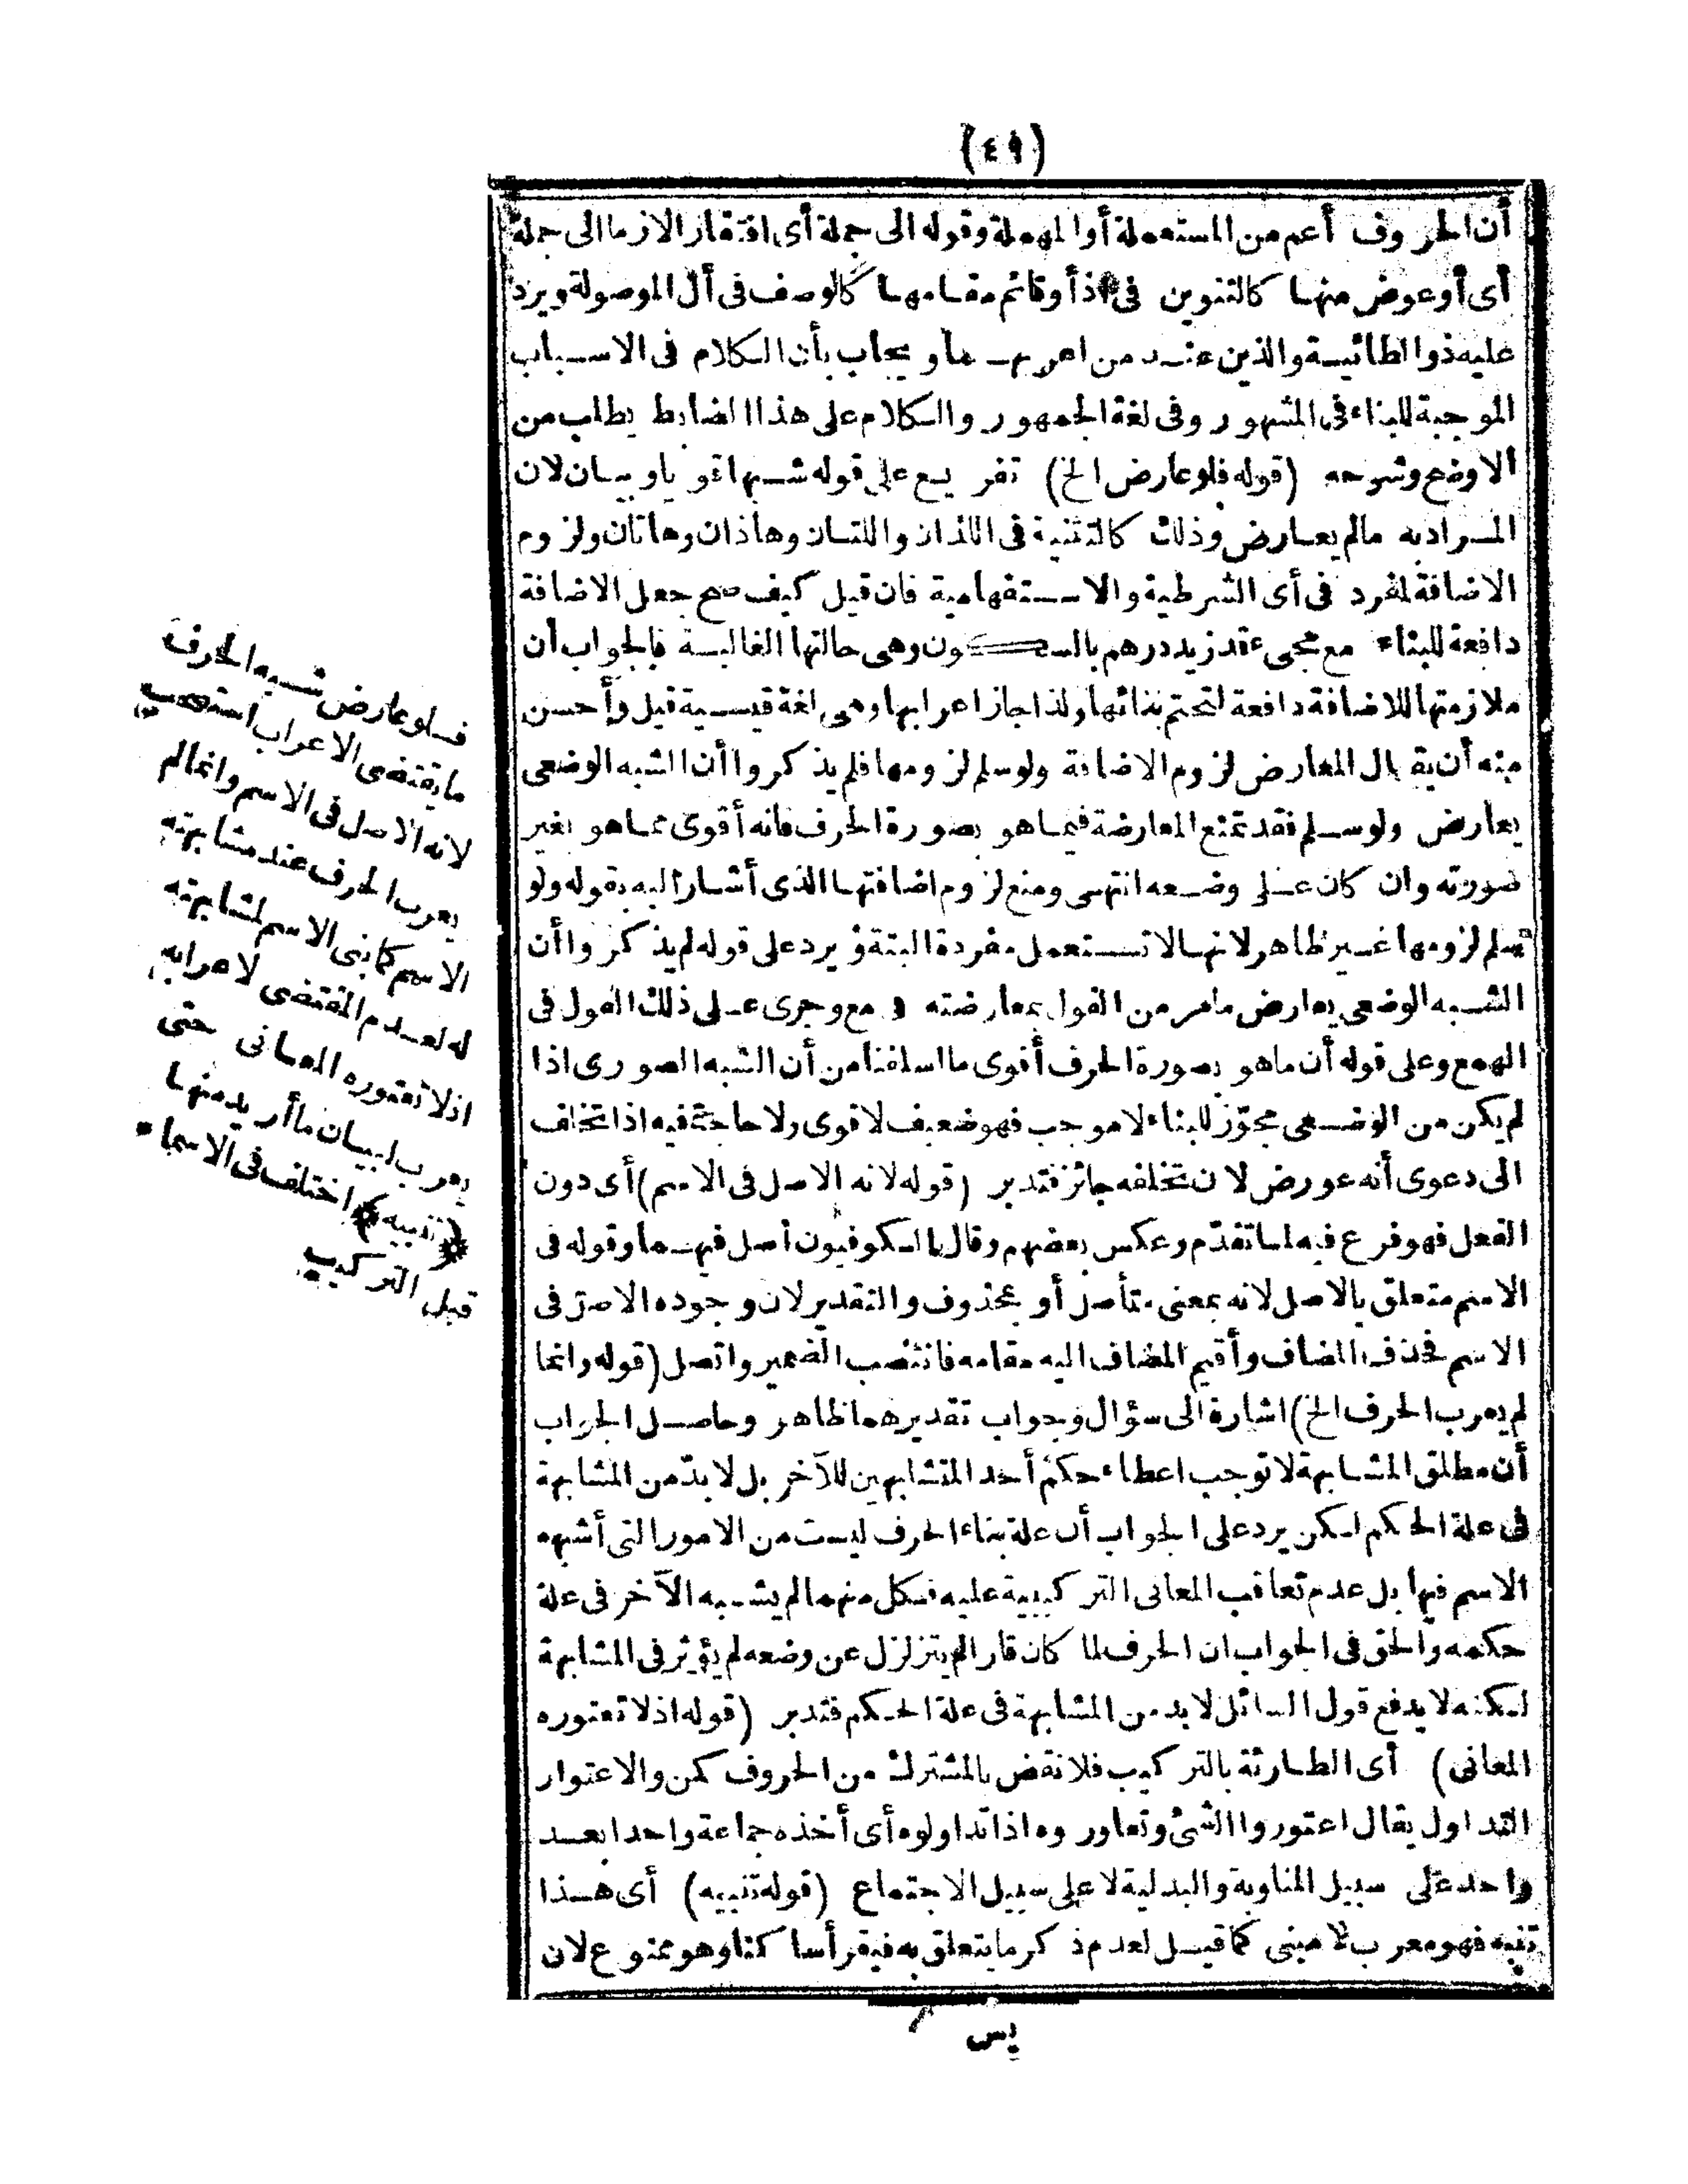 (٤٩)
أن الحروف أعم من المستعملة أو المهملة وقوله الى جملة أى افتقارا لازما الى جملة
أى أو عوض منها كالتنوين فى اذ أو قائم مقامها كالوصف فى أل الموصولة ويرد
عليه ذو الطائية والذين عند من أعربهما ويجاب بأن الكلام فى الاسباب
الموجبة للبناء فى المشهور وفى لغة الجمهور والكلام على هذا الضابط يطلب من
الاوضح وشرحه (قوله فلو عارض الخ) تفريع على قوله شبها قويا وبيان لان
المراد به مالم يعارض وذلك كالتثنية فى اللذان واللتان وهاذان وهاتان ولزوم
الاضافة لمفرد فى أى الشرطية والاستفهامية فان قيل كيف صح جعل الاضافة
دافعة للبناء مع مجىء قد زيد درهم بالسكون وهى حالتها الغالبة فالجواب أن
ملازمتها للاضافة دافعة لتحتم بنائها ولذا جاز اعرابها وهى لغة قيسية قيل وأحسن
منه أن يقال المعارض لزوم الاضافة ولو سلم لزومها فلم يذكروا أن الشبه الوضعى
يعارض ولو سلم فقد تمنع المعارضة فيما هو بصورة الحرف فانه أقوى مما هو بغير
صورته وان كان على وضعه انتهى ومنع لزوم اضافتها الذى أشار اليه بقوله ولو
سلم لزومها غير ظاهر لانها لا تستعمل مفردة البتة ويرد على قوله لم يذكروا أن
الشبه الوضعى يعارض ما مر من القول بمعارضته فى مع وجرى على ذلك القول فى
الهمع وعلى قوله أن ما هو بصورة الحرف أقوى ما اسلفنا من أن الشبه الصورى اذا
لم يكن من الوضعى مجوّز للبناء لا موجب فهو ضعيف لا قوى ولا حاجة فيه اذا تخلف
الى دعوى أنه عورض لان تخلفه جائز فتدبر (قوله لانه الاصل فى الاسم) أى دون
الفعل فهو فرع فيه لما تقدّم وعكس بعضهم وقال الكوفيون أصل فيهما وقوله فى
الاسم متعلق بالاصل لانه بمعنى متأصل أو بمحذوف والتقدير لان وجوده الاصل فى
الاسم فحذف المضاف وأقيم المضاف اليه مقامه فانتصب الضمير واتصل (قوله وانما
لم يعرب الحرف الخ) اشارة الى سؤال وجواب تقديرهما ظاهر وحاصل الجواب
أن مطلق المشابهة لا توجب اعطاء حكم أحد المتشابهين للآخر بل لا بدّ من المشابهة
فى علة الحكم لكن يرد على الجواب أن علة بناء الحرف ليست من الامور التى أشبهه
الاسم فيها بل عدم تعاقب المعانى التركيبية عليه فكل منهما لم يشبه الآخر فى علة
حكمه والحق فى الجواب ان الحرف لما كان قارا لم يتزلزل عن وضعه لم يؤثر فى المشابهة
لكنه لا يدفع قول السائل لا بد من المشابهة فى علة الحكم فتدبر (قوله اذ لا تعتوره
المعانى) أى الطارئة بالتركيب فلا نقض بالمشترك من الحروف كمن والاعتوار
التداول يقال اعتوروا الشئ وتعاوروه اذا تداولوه أى أخذه جماعة واحدا بعد
واحد على سبيل المناوبة والبدلية لا على سبيل الاجتماع (قوله تنبيه) أى هذا
تنبيه فهو معرب لا مبنى كما قيل لعدم ذكر ما يتعلق به فيقرأ ساكنا وهو ممنوع لان
يس
فلو عارض شبه الحرف
ما يقتضى الاعراب استصحب
لانه الاصل فى الاسم وانما لم
يعرب الحرف عند مشابهته
الاسم كما بنى الاسم لمشابهته
له لعدم المقتضى لاعرابه
اذ لا تعتوره المعانى حتى
يعرب لبيان ما أريد منها
﴿تنبيه﴾ اختلف فى الاسماء
قبل التركيب